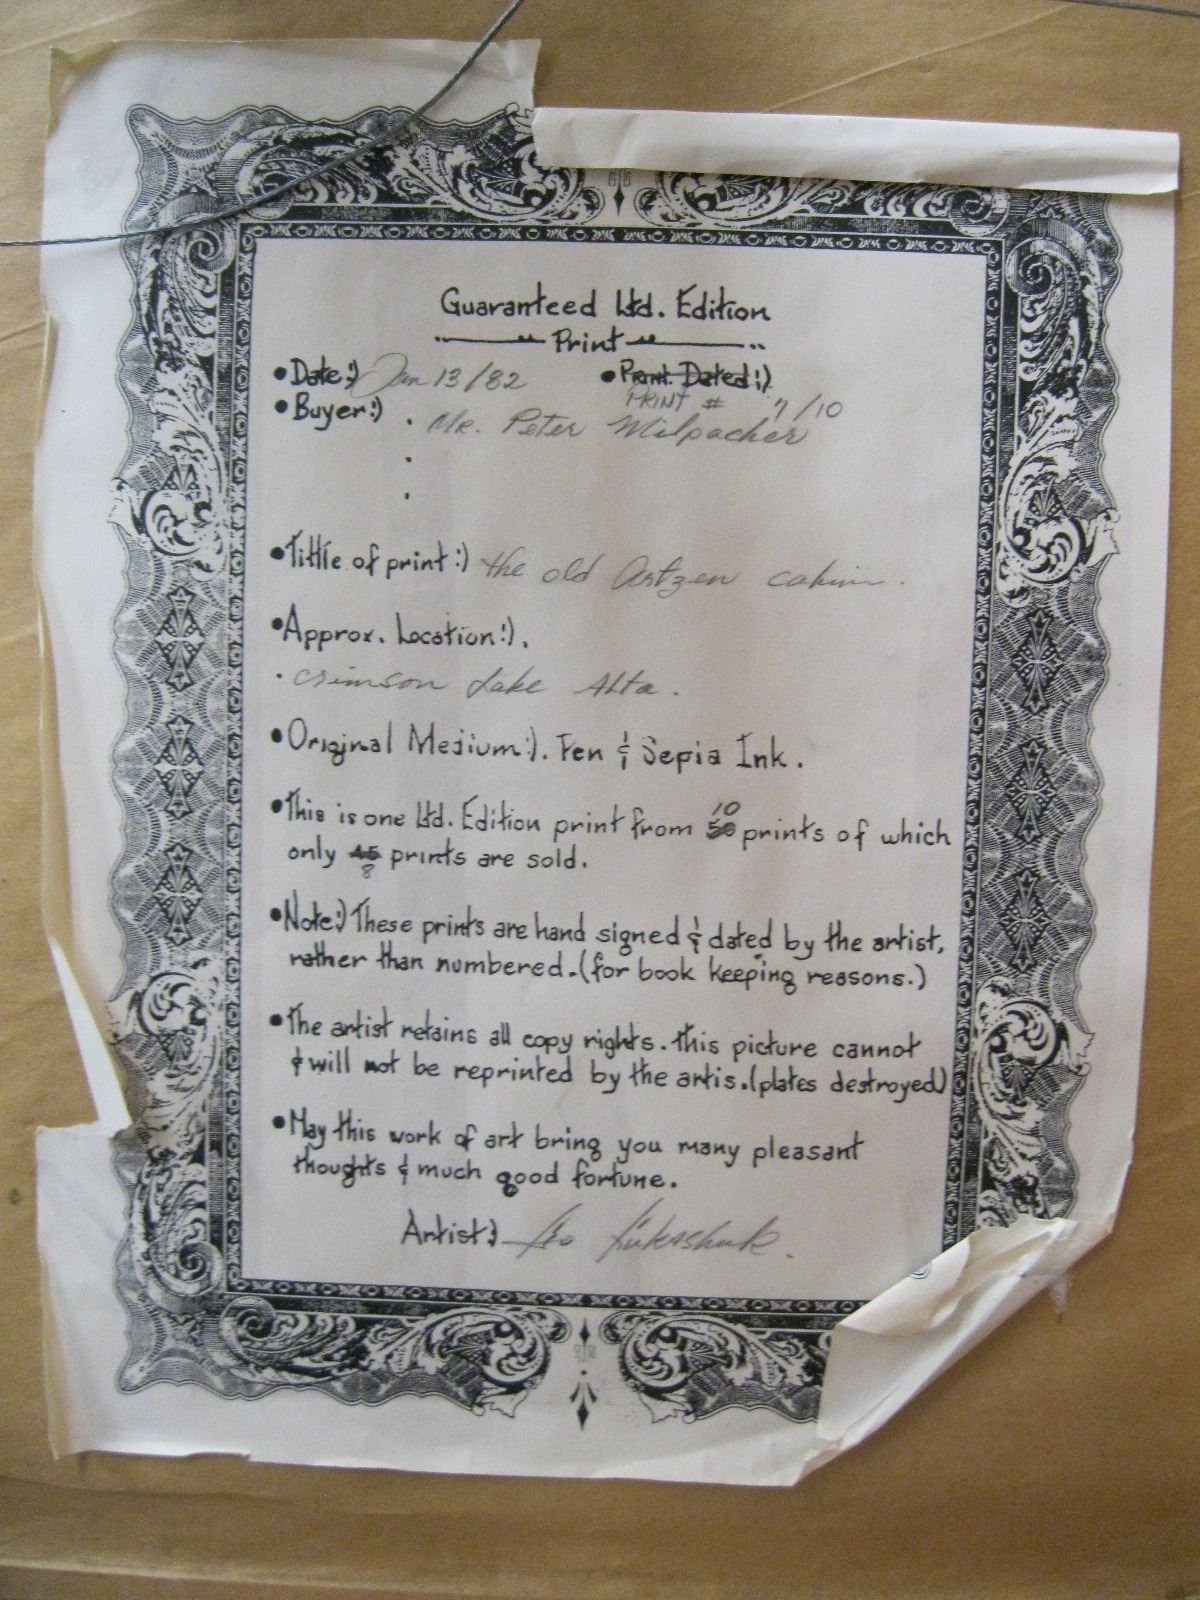 Guaranteed Ltd. Edition
Print
• Date:) Jan 13/82 • Print Dated:)
PRINT # 7/10
• Buyer:) . Mr. Peter Milpacher
• Tittle of print:) the old Artzen cabin.
• Approx. Location:).
. crimson Lake Alta.
• Original Medium:). Pen & Sepia Ink.
10
• This is one Ltd. Edition print from 50 prints of which
only 45 prints are sold.
8
• Note:) These prints are hand signed & dated by the artist,
rather than numbered. (for book keeping reasons.)
• The artist retains all copy rights. This picture cannot
& will not be reprinted by the artis. (plates destroyed)
• May this work of art bring you many pleasant
thoughts & much good fortune.
Artist:) Leo Lukashuk.